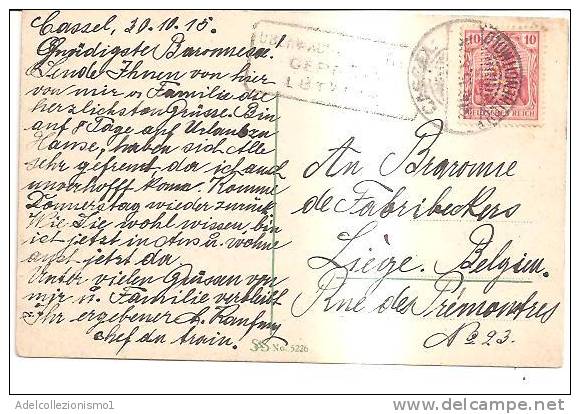 Cassel, 30.10.15.
Gnädigster Baronnesse!
Sende Ihnen von hier
von mir u Familie die
herzlichsten Grüsse. Bin
auf 8 Tage auf Urlaub zu
Hause, haben sich Alle
sehr gefreut, da ich auch
unverhofft kam. Komme
Donnerstag wieder zurück.
Wie Sie wohl wissen, bin
ich jetzt in Ans u. wohne
auch jetzt da
Unter vielen Grüssen von
mir u. Familie verbleibt
Ihr ergebener
chef du train.
GEPR
LÜTTICH
CASSEL
10 10
DEUTSCHES REICH
An Braronne
de Fabribeckers
Liège. Belgien.
Rue des Prémontres
No 23.
No. 5226
© Adecollezionismo1
http://www.delcampe.net